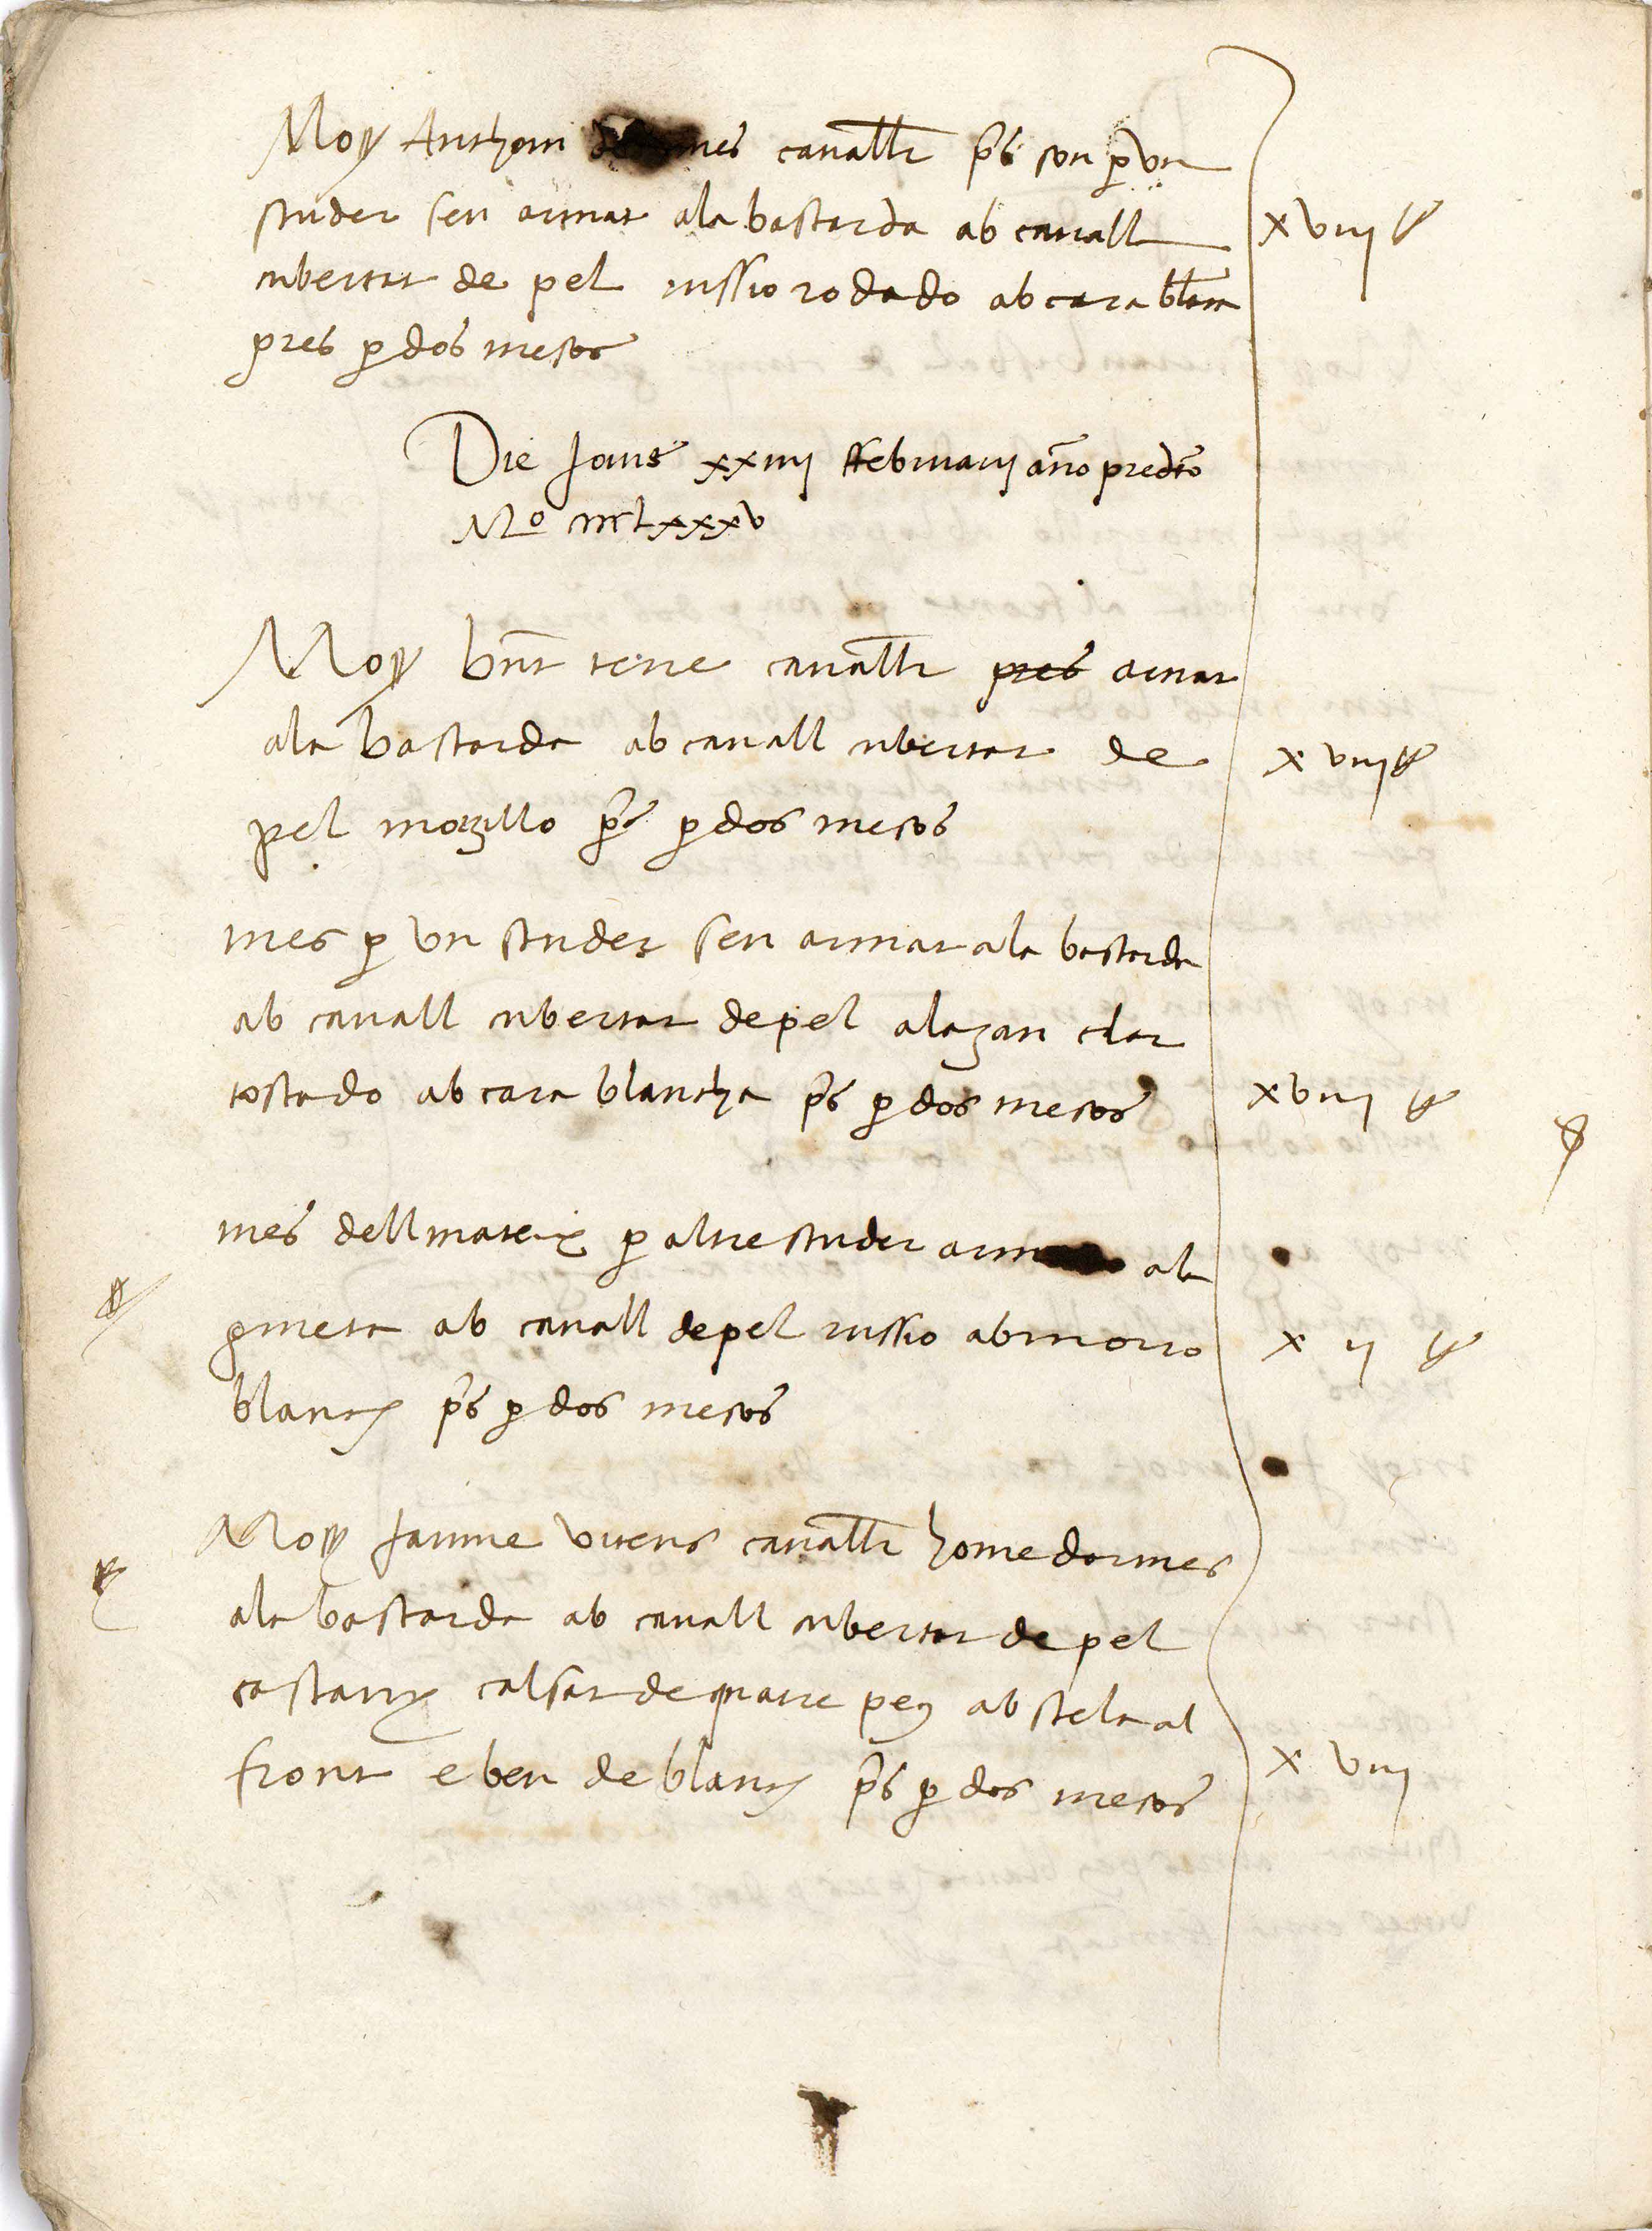 Mossen Anthoni cavaller pres sou per un
scuder seu armat ala bastarda ab cavall
xviiii ll
cubertat de pel russio rodado ab cara blanca
pres per dos mesos
Die Jovis xxiiii ffebruarii anno predicto
Mo cccclxxxv
Mossen bernat terre cavaller pres armat
ala bastarda ab cavall cubertat de
xviii ll
pel morzillo pres per dos mesos
mes per un scuder seu armat ala bastarda
ab cavall cubertat de pel alazan clar
tostado ab cara blancha pres per dos mesos
xviii ll
mes dell mateix per altre scuder armat ala
gineta ab cavall de pel russio ab morro
x ii ll
blanch pres per dos mesos
Mossen Jaume vivens cavaller home darmes
ala bastarda ab cavall cubertat de pel
castany calsat de quatre peus ab stela al
front e ben de blanch pres per dos mesos
x viii